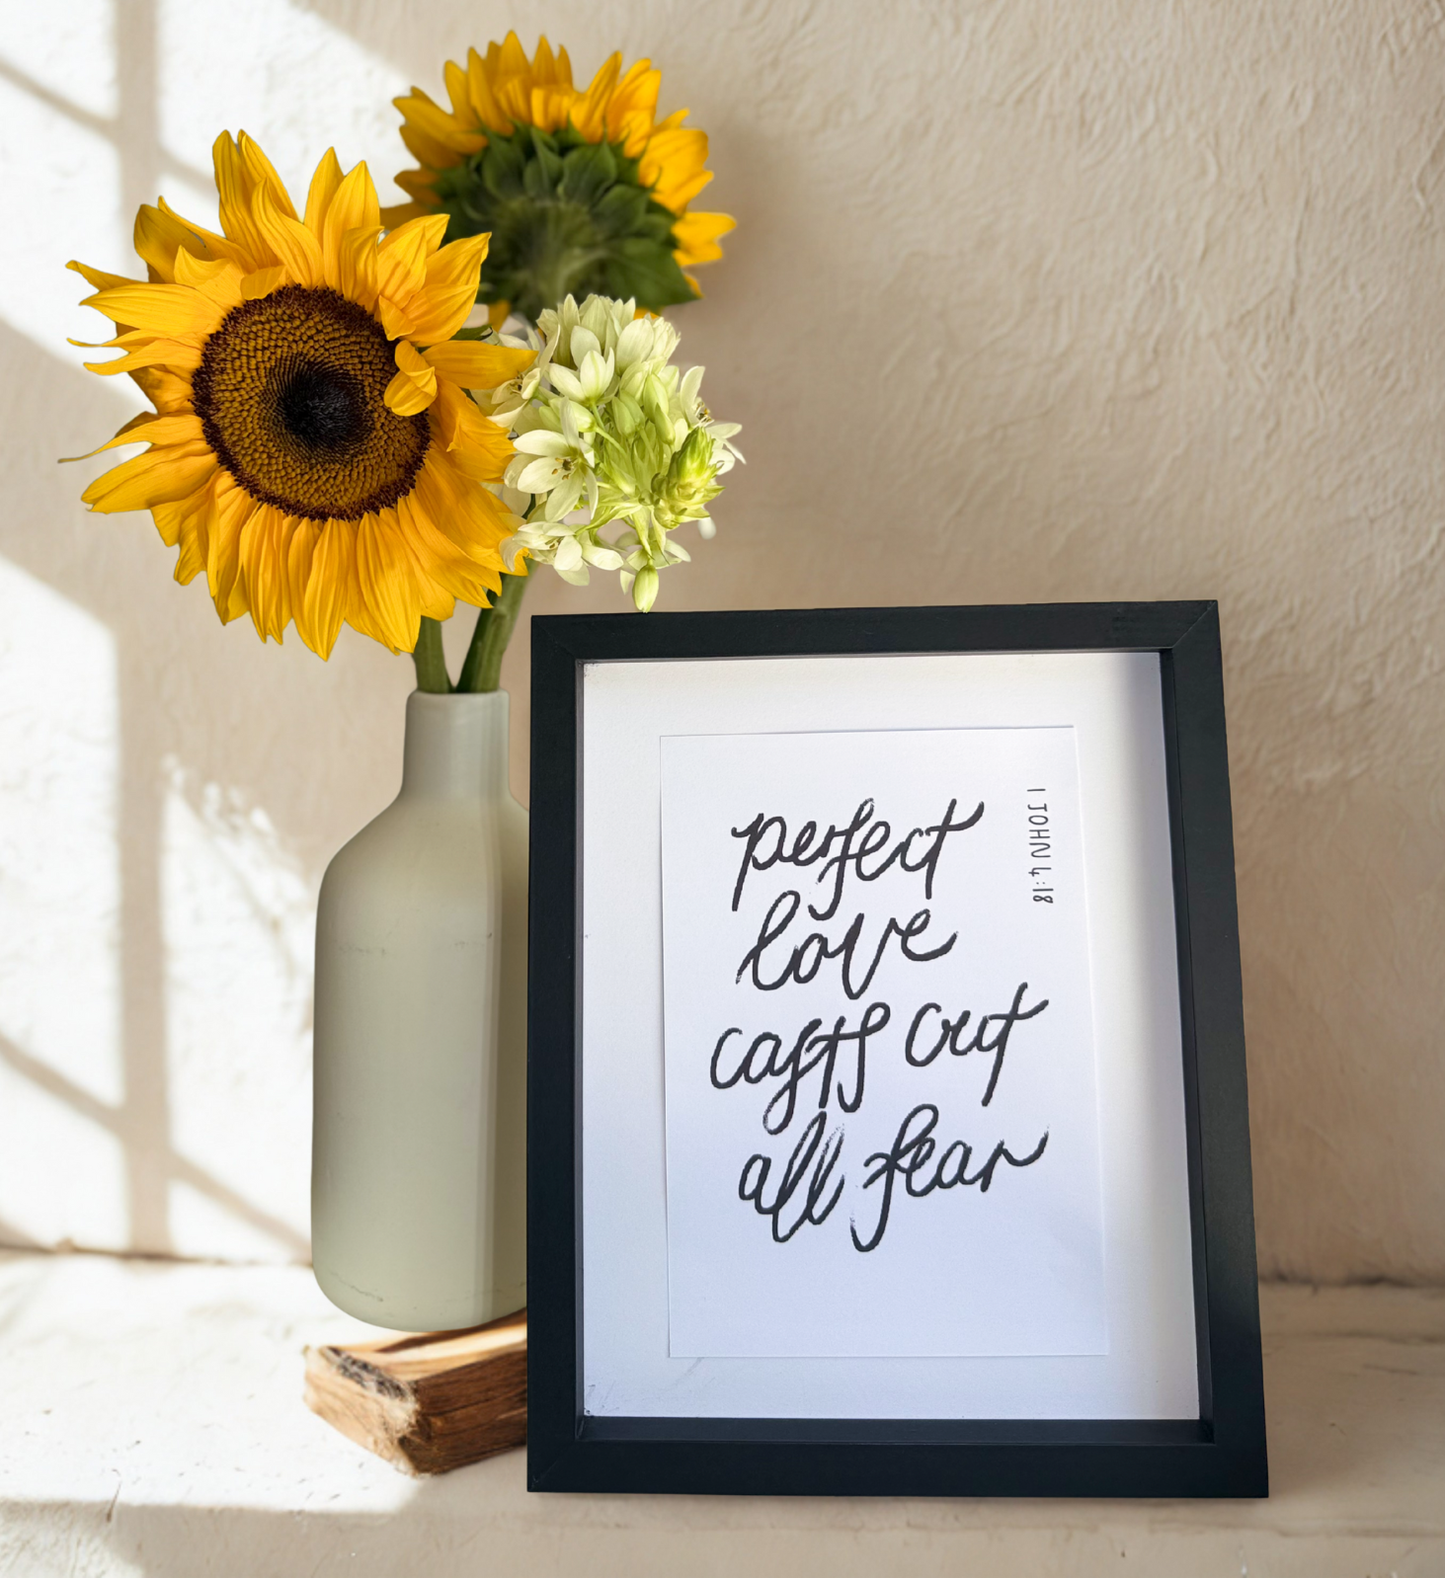 perfect
love
casts out
all fear
1 JOHN 4:18